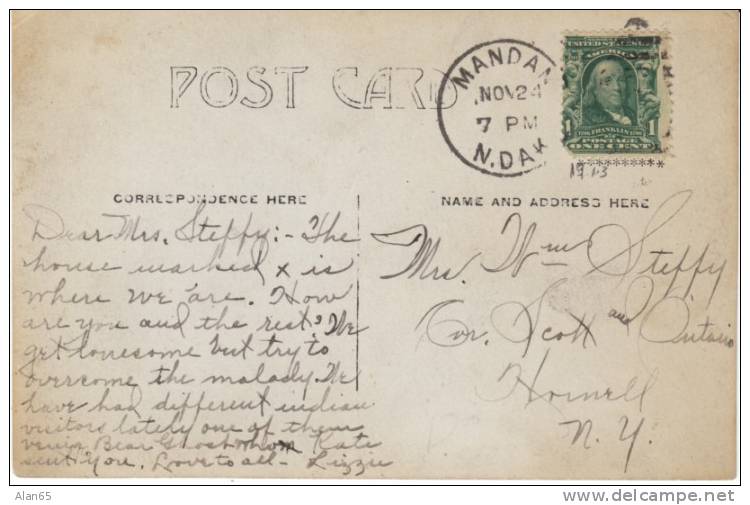 POST CARD
MANDAN
NOV 24
7 PM
N. DAK
UNITED STATES
AMERICA
FRANKLIN
POSTAGE
1 ONE CENT 1
1913
CORRESPONDENCE HERE
NAME AND ADDRESS HERE
Dear Mrs. Steffy:- The
house marked x is
where we are. How
are you and the rest? We
get lonesome but try to
overcome the malady. We
have had different indian
visitors lately one of them
Bear Ghost whom Kate
sent you. Love to all - Lizzie
Mrs. Wm Steffy
Cor. Scott and Ontario
Hornell
N. Y.
Alan65
delcampe.net